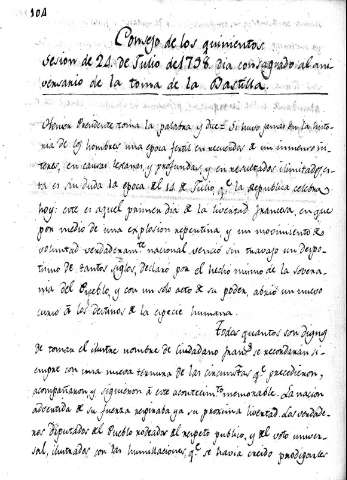 104
Consejo de los quinientos.
Sesion de 24 de Julio de 1798. Dia consagrado al ani
versario de la toma de la Bastilla.
Presidente toma la palabra y dice: Si huvo jamas en la histo
ria de los hombres una epoca fertil en recuerdos de un inmenso in
teres, en causas lexanas, y profundas, y en resultados ilimitados, es
ta es sin duda la epoca del 14 de Julio qe. la Republica celebra
hoy: este es aquel primer dia de la livertad francesa, en que
por medio de una explosion repentina y un movimiento de
voluntad verdaderamte. nacional venció sin trabajo un despo
tismo de tantos siglos, declaro por el hecho mismo de la sovera
nia del Pueblo, y con un solo acto de su poder, abrió un nuevo
curso de los destinos de la especie humana.
Todos quantos son dignos
de tomar el ilustre nombre de Ciudadano se recordaran si
empre con una nueva de las circunstas. qe. precedieron,
acompañaron y siguieron á este acontecimto. memorable. La nacion
advertida de su fuerza respiraba ya su proxima livertad. Los verdade
ros Diputados del Pueblo rodeados del respeto publico, y del voto univer
sal, ilustrados con las humillaciones, qe. se havia creido prodigarles